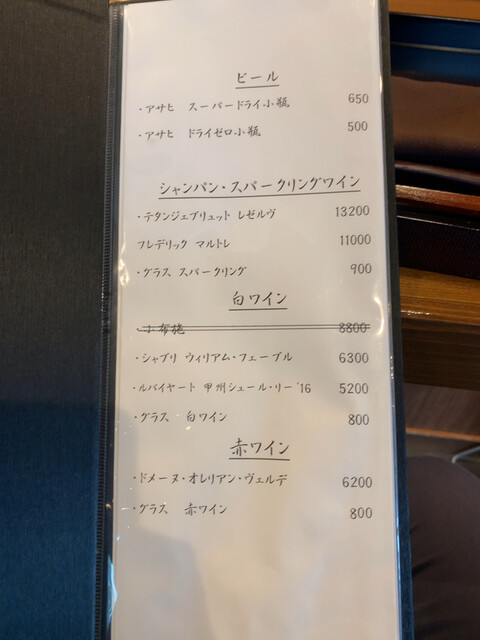 ビール
・アサヒ スーパードライ小瓶 650
・アサヒ ドライゼロ小瓶 500
シャンパン・スパークリングワイン
・テタンジェブリュット レゼルヴ 13200
フレデリック マルトレ 11000
・グラス スパークリング 900
白ワイン
・小布施 8800
・シャブリ ウィリアム・フェーブル 6300
・ルバイヤート 甲州シュール・リー '16 5200
・グラス 白ワイン 800
赤ワイン
・ドメーヌ・オレリアン・ヴェルデ 6200
・グラス 赤ワイン 800